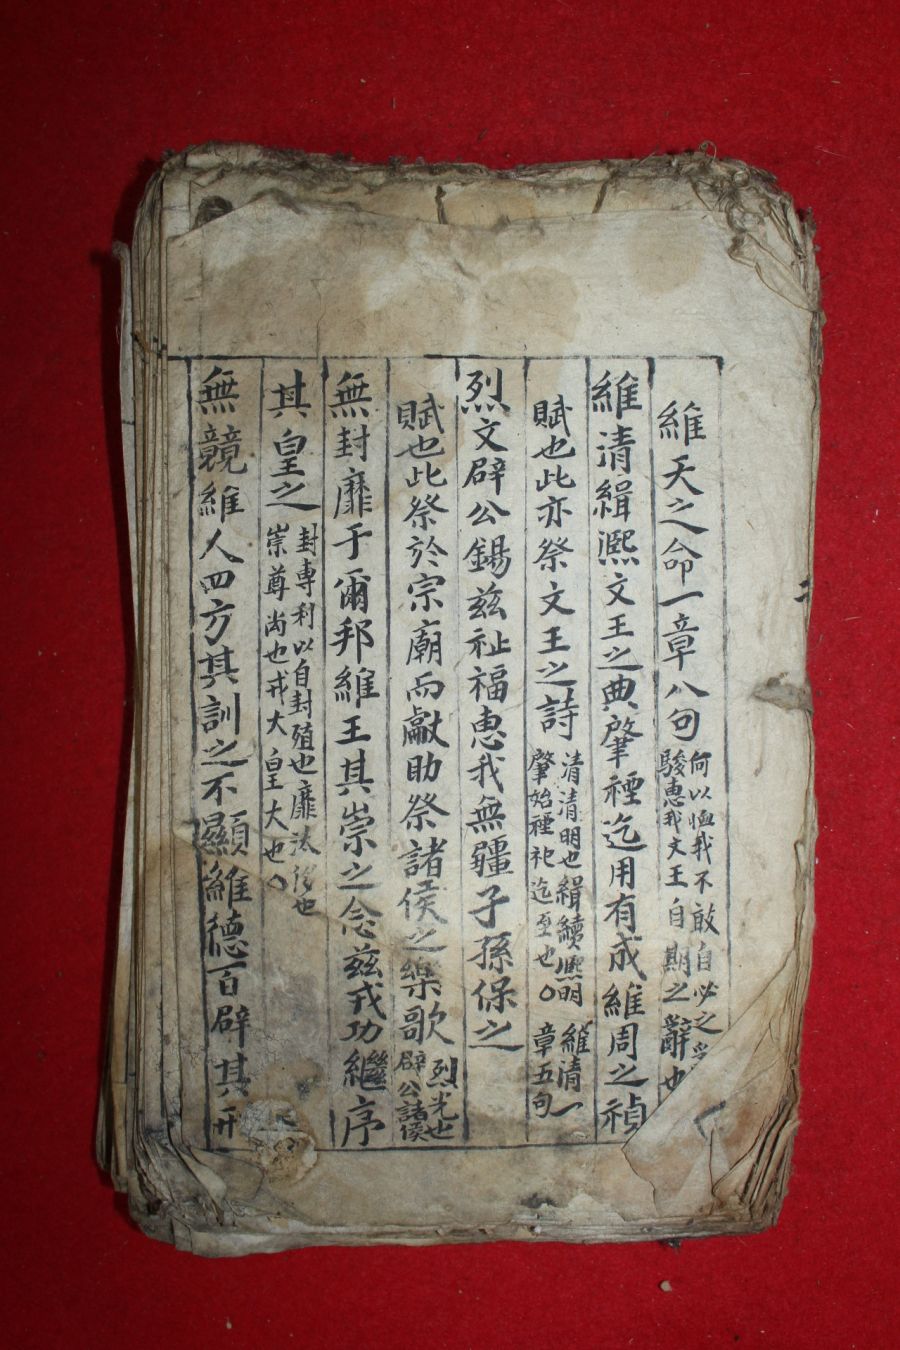 維天之命一章八句 何以恤我不敢自必之
駿惠我文王自期之辭也
維清緝熙文王之典肇禋迄用有成維周之禎
賦也此亦祭文王之詩 清清明也緝續熙明 維清一
肇始禋祀迄至也〇 章五句
烈文辟公錫玆祉福惠我無疆子孫保之
賦也此祭於宗廟而獻助祭諸侯之樂歌 烈光也
辟公諸侯
無封靡于爾邦維王其崇之念玆戎功繼序
其皇之 封專利以自封殖也靡汰侈也
崇尊尚也戎大皇大也〇
無競維人四方其訓之不顯維德百辟其刑